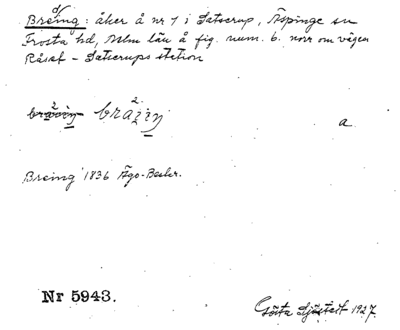 Breing: åker å nr 1 i Satserup, Äspinge sn
Frosta hd, Mlm län å fig. num. 6. norr om vägen
Råset - Satserups station
braiŋ a.
Breing 1836 Ägo-Beskr.
Nr 5943.
Gösta Sjöstedt 1927.